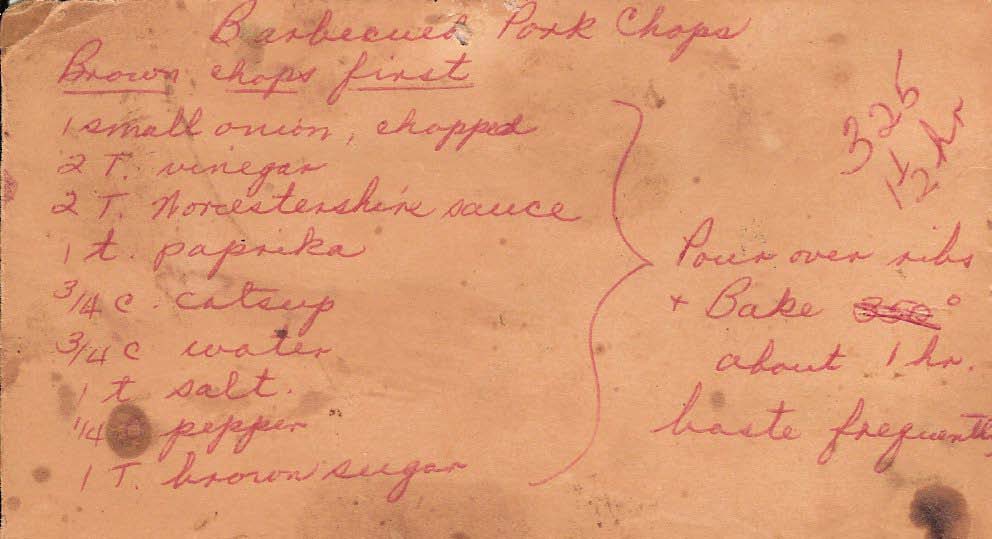 Barbecued Pork Chops
Brown chops first
1 small onion, chopped
2 T. vinegar
2 T. Worcestershire sauce
1 t. paprika
3/4 c. catsup
3/4 c water
1 t salt.
1/4 pepper
1 T. brown sugar
325
1 1/2 hr
Pour over ribs
+ Bake 350°
about 1 hr.
baste frequently